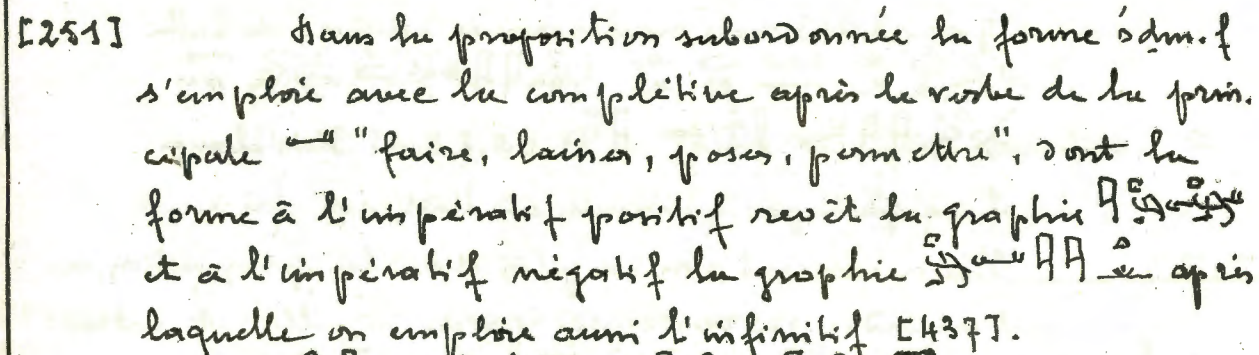 [251] Dans la proposition subordonnée la forme śdm.f
s'emploie avec la complétive après le verbe de la prin.
cipale "faire, laisser, poser, permettre", dont la
forme à l'impératif positif revêt la graphie
et à l'impératif négatif la graphie après
laquelle on emploie aussi l'infinitif [437].